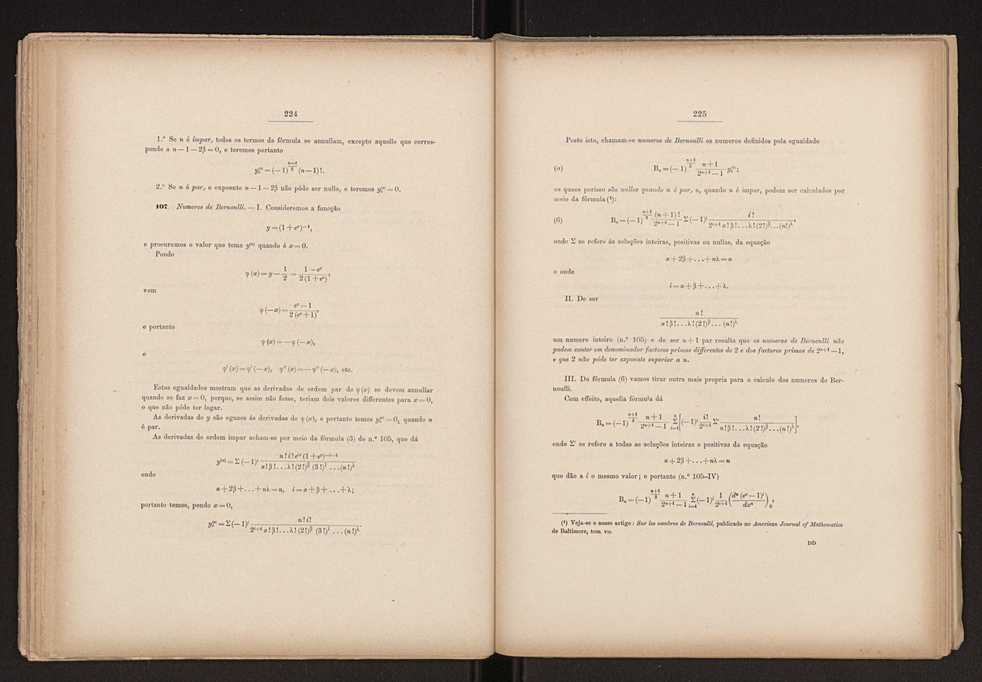 224
1.º Se n é impar, todos os termos da fórmula se annullam, excepto aquelle que corres-
ponde a n — 1 — 2β = 0, e teremos portanto
2.º Se n é par, o expoente n — 1 — 2β não póde ser nullo, e teremos y₀⁽ⁿ⁾ = 0.
107. Numeros de Bernoulli. — I. Consideremos a funcção
y = (1 + eˣ)⁻¹,
e procuremos o valor que toma y⁽ⁿ⁾ quando é x = 0.
Pondo
η (x) = y — 1/2 = (1 — eˣ)/(2 (1 + eˣ)),
vem
η (— x) = (eˣ — 1)/(2 (eˣ + 1)),
e portanto
η (x) = — η (— x),
e
η′ (x) = η′ (— x), η″ (x) = — η″ (— x), etc.
Estas egualdades mostram que as derivadas de ordem par de η (x) se devem annullar
quando se faz x = 0, porque, se assim não fosse, teriam dois valores differentes para x = 0,
o que não póde ter logar.
As derivadas de y são eguaes ás derivadas de η (x), e portanto temos y₀⁽ⁿ⁾ = 0, quando n
é par.
As derivadas de ordem impar acham-se por meio da fórmula (3) do n.º 105, que dá
onde
α + 2β + . . . + nλ = n, i = α + β + . . . + λ;
portanto temos, pondo x = 0,
225
Posto isto, chamam-se numeros de Bernoulli os numeros definidos pela egualdade
(a) Bₙ = (— 1)^((n+1)/2) (n + 1)/(2ⁿ⁺¹ — 1) y₀⁽ⁿ⁾;
os quaes porisso são nullos quando n é par, e, quando n é impar, podem ser calculados por
meio da fórmula (¹):
(6) Bₙ = (— 1)^((n+1)/2) (n + 1)!/(2ⁿ⁺¹ — 1) Σ (— 1)ⁱ i!/(2ⁱ⁺¹ α! β! . . . λ! (2!)^β . . . (n!)^λ),
onde Σ se refere ás soluções inteiras, positivas ou nullas, da equação
α + 2β + . . . + nλ = n
e onde
i = α + β + . . . + λ.
II. De ser
n!/(α! β! . . . λ! (2!)^β . . . (n!)^λ)
um numero inteiro (n.º 105) e de ser n + 1 par resulta que os numeros de Bernoulli não
podem conter em denominador factores primos differentes de 2 e dos factores primos de 2ⁿ⁺¹ — 1,
e que 2 não póde ter expoente superior a n.
III. Da fórmula (6) vamos tirar outra mais propria para o calculo dos numeros de Ber-
noulli.
Com effeito, aquella fórmula dá
onde Σ′ se refere a todas as soluções inteiras e positivas da equação
α + 2β + . . . + nλ = n
que dão a i o mesmo valor; e portanto (n.º 105–IV)
(¹) Veja-se o nosso artigo: Sur les nombres de Bernoulli, publicado no American Journal of Mathematics
de Baltimore, tom. VII.
DD